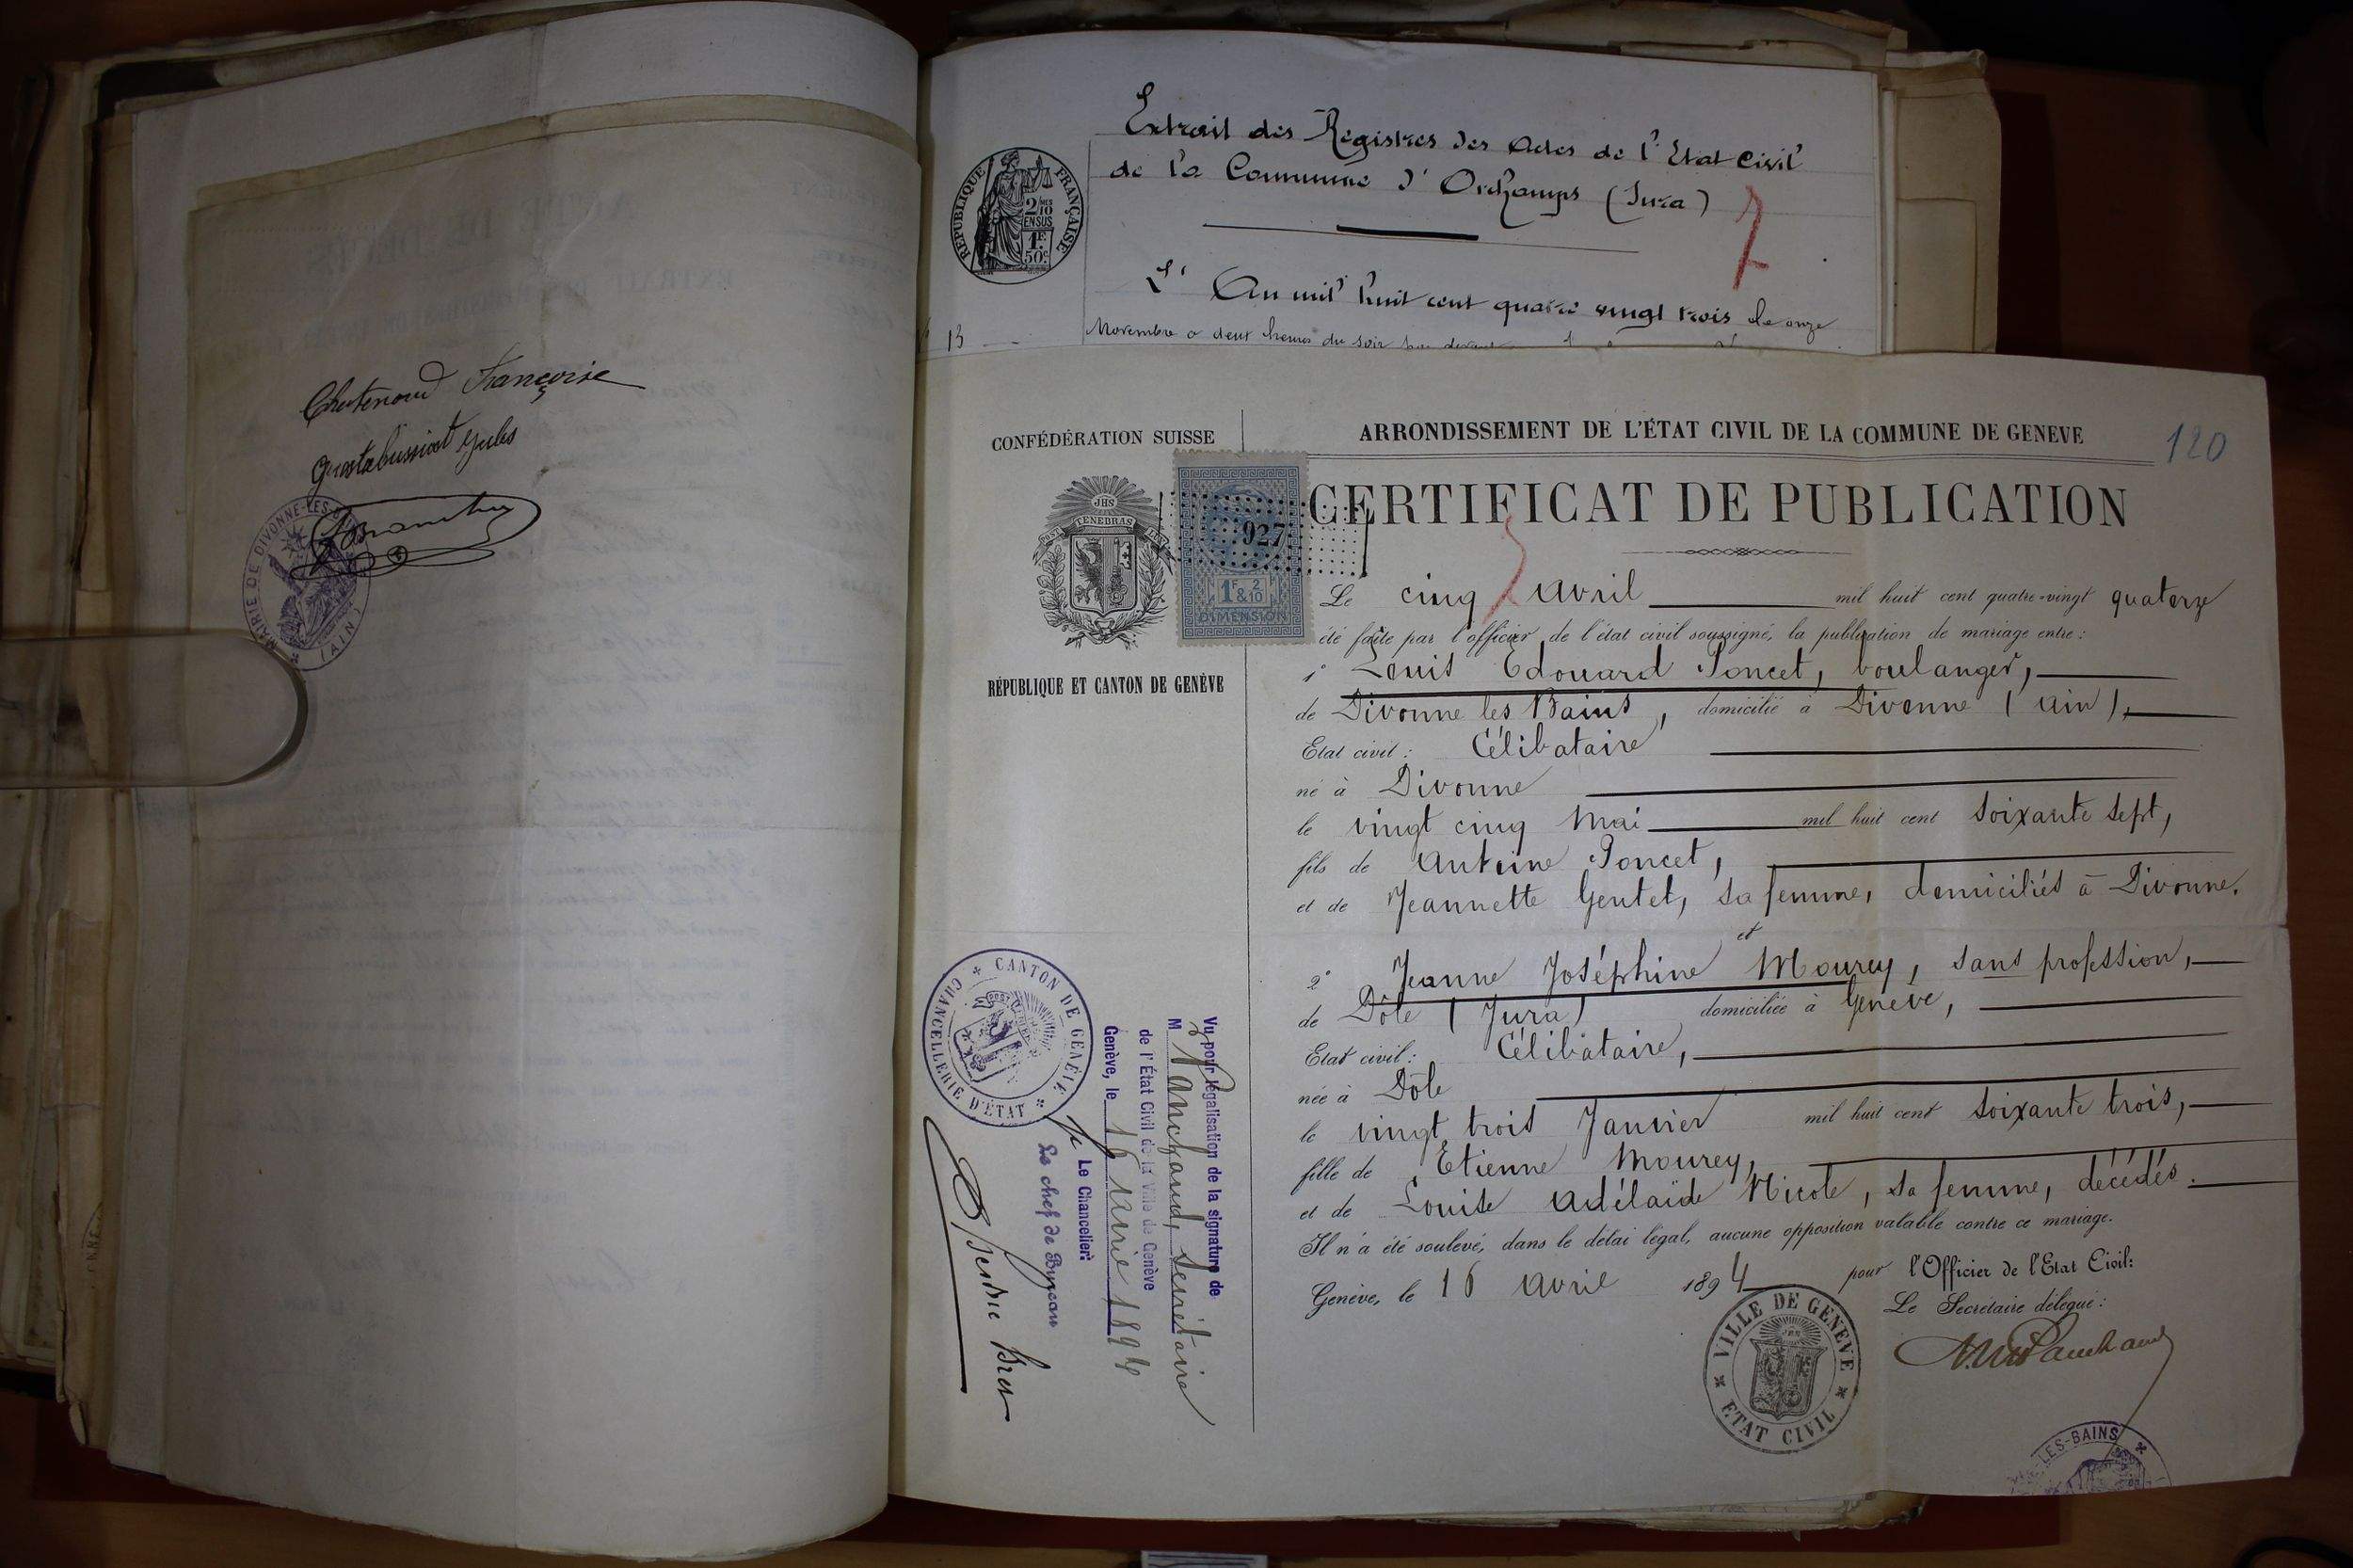 Chatenoud Françoise
MAIRIE DE DIVONNE-LES-BAINS
(AIN)
Extrait des Registres des Actes de l'Etat Civil
de la Commune d'Orchamps (Jura)
7
RÉPUBLIQUE FRANÇAISE
2/10 EN SUS
1F 50c
L'An mil huit cent quatre vingt trois le onze
13
Novembre a deux heures du soir par devant
CONFÉDÉRATION SUISSE
JHS
POST TENEBRAS LUX
RÉPUBLIQUE ET CANTON DE GENÈVE
927
1F & 2/10
DIMENSION
ARRONDISSEMENT DE L'ÉTAT CIVIL DE LA COMMUNE DE GENEVE
120
CERTIFICAT DE PUBLICATION
Le cinq avril mil huit cent quatre-vingt quatorze
été faite par l'officier de l'état civil soussigné, la publication de mariage entre:
1° Louis Edouard Poncet, boulanger,
de Divonne les Bains, domicilié à Divonne (Ain),
Etat civil: Célibataire
né à Divonne
le vingt cinq Mai mil huit cent soixante sept,
fils de Antoine Poncet,
et de Jeannette Gentet, sa femme, domiciliés à Divonne.
et
2° Jeanne Joséphine Mourey, sans profession,
de Dôle (Jura) domiciliée à Genève,
Etat civil: Célibataire,
née à Dôle
le vingt trois Janvier mil huit cent soixante trois,
fille de Etienne Mourey,
et de Louise Adélaïde Nicole, sa femme, décédés.
Il n'a été soulevé, dans le délai légal, aucune opposition valable contre ce mariage.
Genève, le 16 avril 1894
pour l'Officier de l'Etat Civil:
Le Secrétaire délégué:
VILLE DE GENÈVE
ETAT CIVIL
LES-BAINS
Vu pour légalisation de la signature de
M Panchaud, secrétaire
de l'État Civil de la Ville de Genève
Genève, le 16 avril 1894
p Le Chancelier:
Le chef de Bureau
CANTON DE GENÈVE
CHANCELLERIE D'ÉTAT